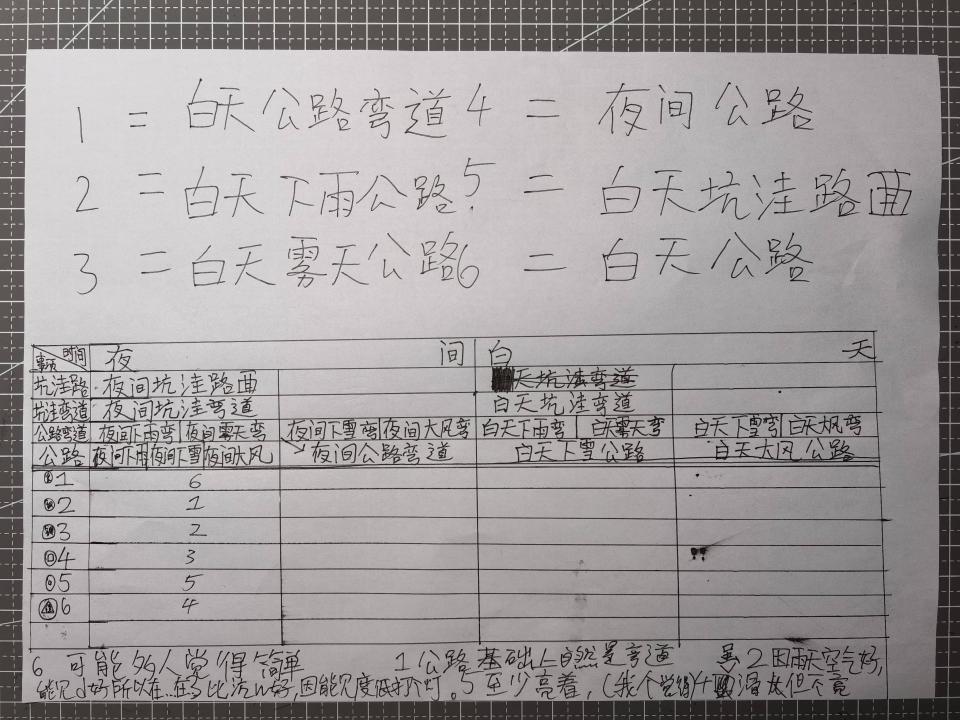 1 = 白天公路弯道 4 = 夜间公路
2 = 白天下雨公路 5 = 白天坑洼路面
3 = 白天雾天公路 6 = 白天公路
时间 夜 间 白 天
坑洼路 夜间坑洼路面 天坑洼弯道
坑洼弯道 夜间坑洼弯道 白天坑洼弯道
公路弯道 夜间下雨弯 夜间雾天弯 夜间下雪弯 夜间大风弯 白天下雨弯 白天雾天弯 白天下雪弯 白天大风弯
公路 夜间下雨 夜间下雪 夜间大风 夜间公路弯道 白天下雪公路 白天大风公路
1 6
2 1
3 2
4 3
5 5
6 4
6 可能多人觉得简单 1 公路基础上自然是弯道 2 因雨天空气好,
能见d好所以在 比法 好,因能见度低打个灯。5 至少亮着,(我个觉得)4 滑 但不竟